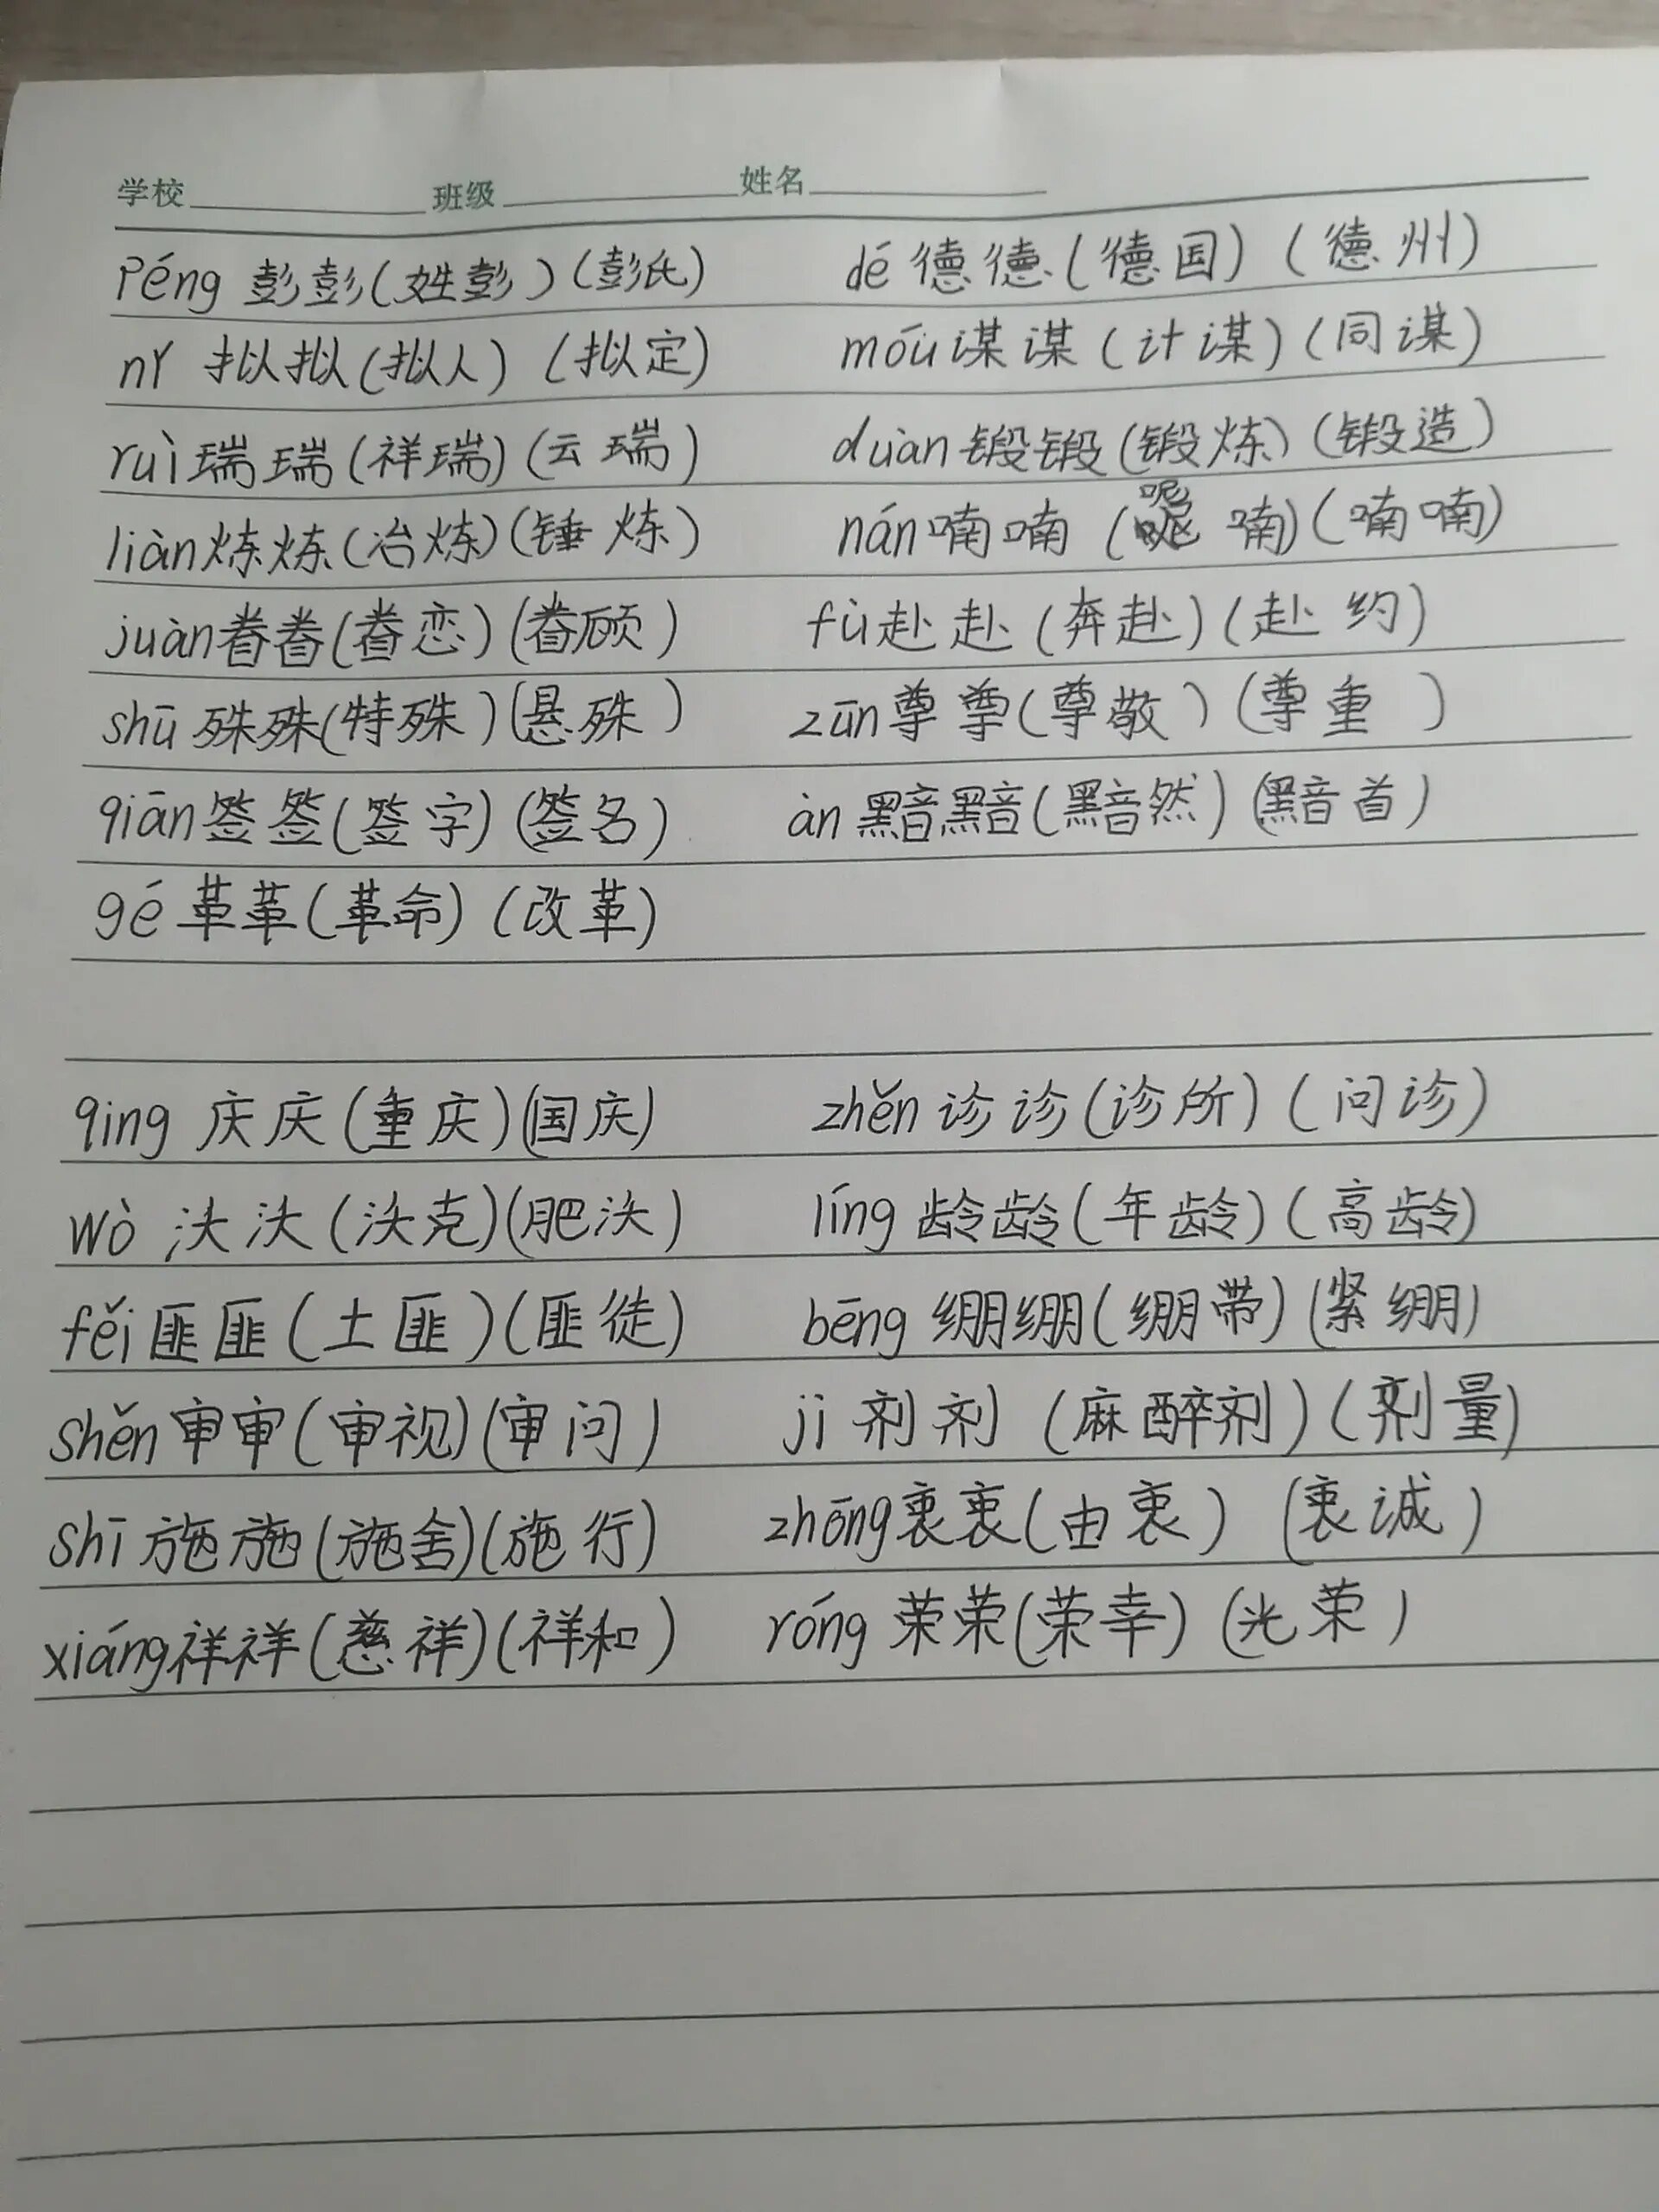 学校 班级 姓名
péng 彭彭(姓彭)(彭氏) dé 德德(德国)(德州)
nǐ 拟拟(拟人)(拟定) móu 谋谋(计谋)(同谋)
ruì 瑞瑞(祥瑞)(云瑞) duàn 锻锻(锻炼)(锻造)
liàn 炼炼(冶炼)(锤炼) nán 喃喃(呢喃)(喃喃)
juàn 眷眷(眷恋)(眷顾) fù 赴赴(奔赴)(赴约)
shū 殊殊(特殊)(悬殊) zūn 尊尊(尊敬)(尊重)
qiān 签签(签字)(签名) àn 黯黯(黯然)(黯首)
gé 革革(革命)(改革)
qing 庆庆(重庆)(国庆) zhěn 诊诊(诊所)(问诊)
wò 沃沃(沃克)(肥沃) líng 龄龄(年龄)(高龄)
fěi 匪匪(土匪)(匪徒) bēng 绷绷(绷带)(紧绷)
shěn 审审(审视)(审问) jì 剂剂(麻醉剂)(剂量)
shī 施施(施舍)(施行) zhōng 衷衷(由衷)(衷诚)
xiáng 祥祥(慈祥)(祥和) róng 荣荣(荣幸)(光荣)